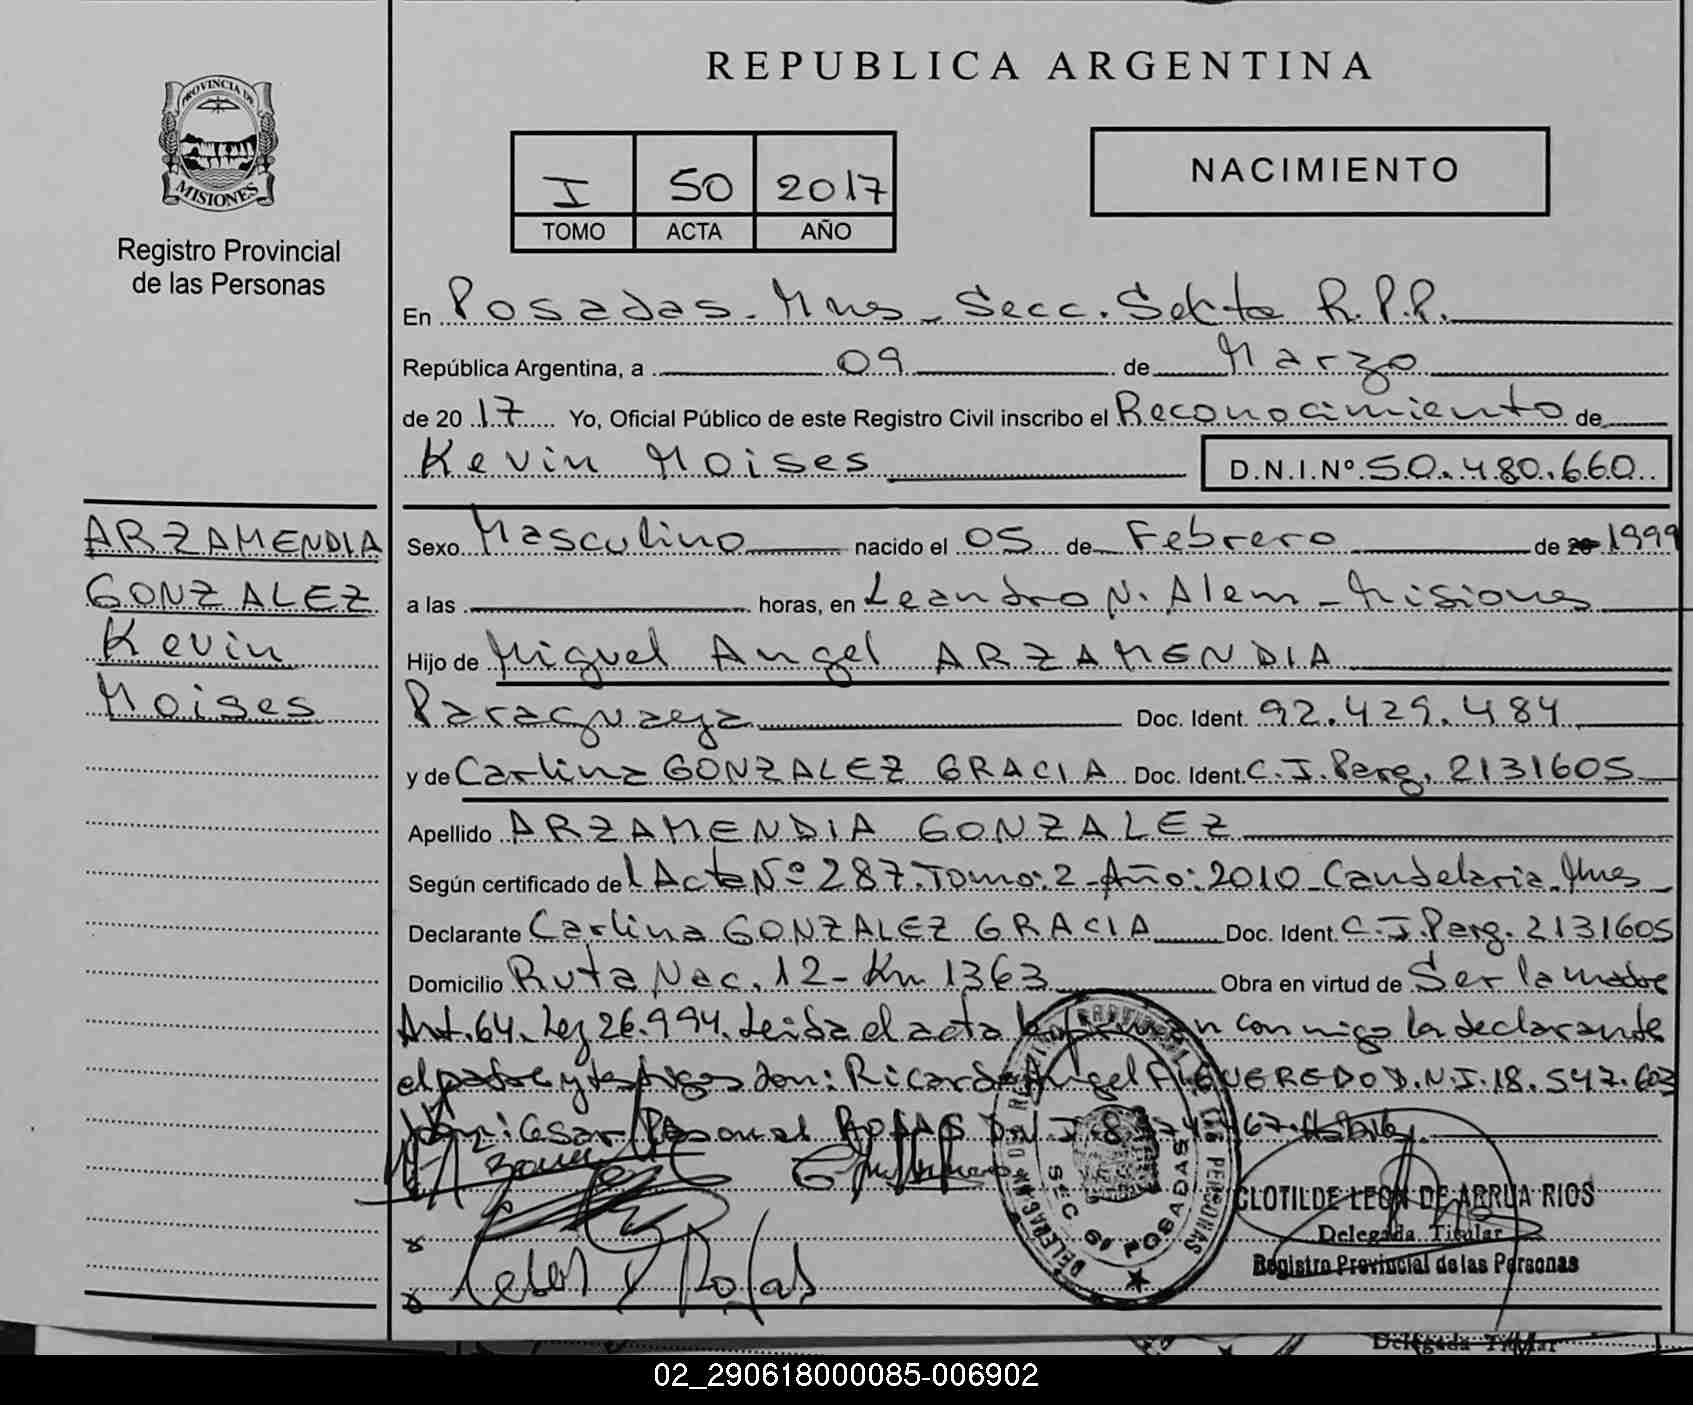 REPUBLICA ARGENTINA
PROVINCIA DE
MISIONES
Registro Provincial
de las Personas
I 50 2017
TOMO ACTA AÑO
NACIMIENTO
En Posadas. Mnes _ Secc. Sexta R.P.R.
República Argentina, a 09 de Marzo
de 20 17 Yo, Oficial Público de este Registro Civil inscribo el Reconocimiento de
Kevin Moises D.N.I.Nº 50.480.660
ARZAMENDIA
GONZALEZ
Kevin
Moises
Sexo Masculino nacido el 05 de Febrero de 20 1999
a las horas, en Leandro N. Alem _ Misiones
Hijo de Miguel Angel ARZAMENDIA
Paraguaya Doc. Ident. 92.429.484
y de Carlina GONZALEZ GRACIA Doc. Ident. C.I. Parg. 2131605
Apellido ARZAMENDIA GONZALEZ
Según certificado del Acta Nº 287. Tomo: 2 - Año: 2010 _ Candelaria. Mnes
Declarante Carlina GONZALEZ GRACIA Doc. Ident. C.I. Parg. 2131605
Domicilio Ruta Nac. 12 - Km 1363 Obra en virtud de Ser la madre
Art. 64. Ley 26.994. Leida el acta con migo la declarante
el padre y testigos don: Ricardo Angel FIGUEREDO D.N.I. 18.547.603
Don: Cesar ROJAS D.N.I.
SEC 6ª POSADAS
CLOTILDE LEON DE ARRUA RIOS
Delegada Titular
Registro Provincial de las Personas
Rojas
Delegada Titular
02_290618000085-006902